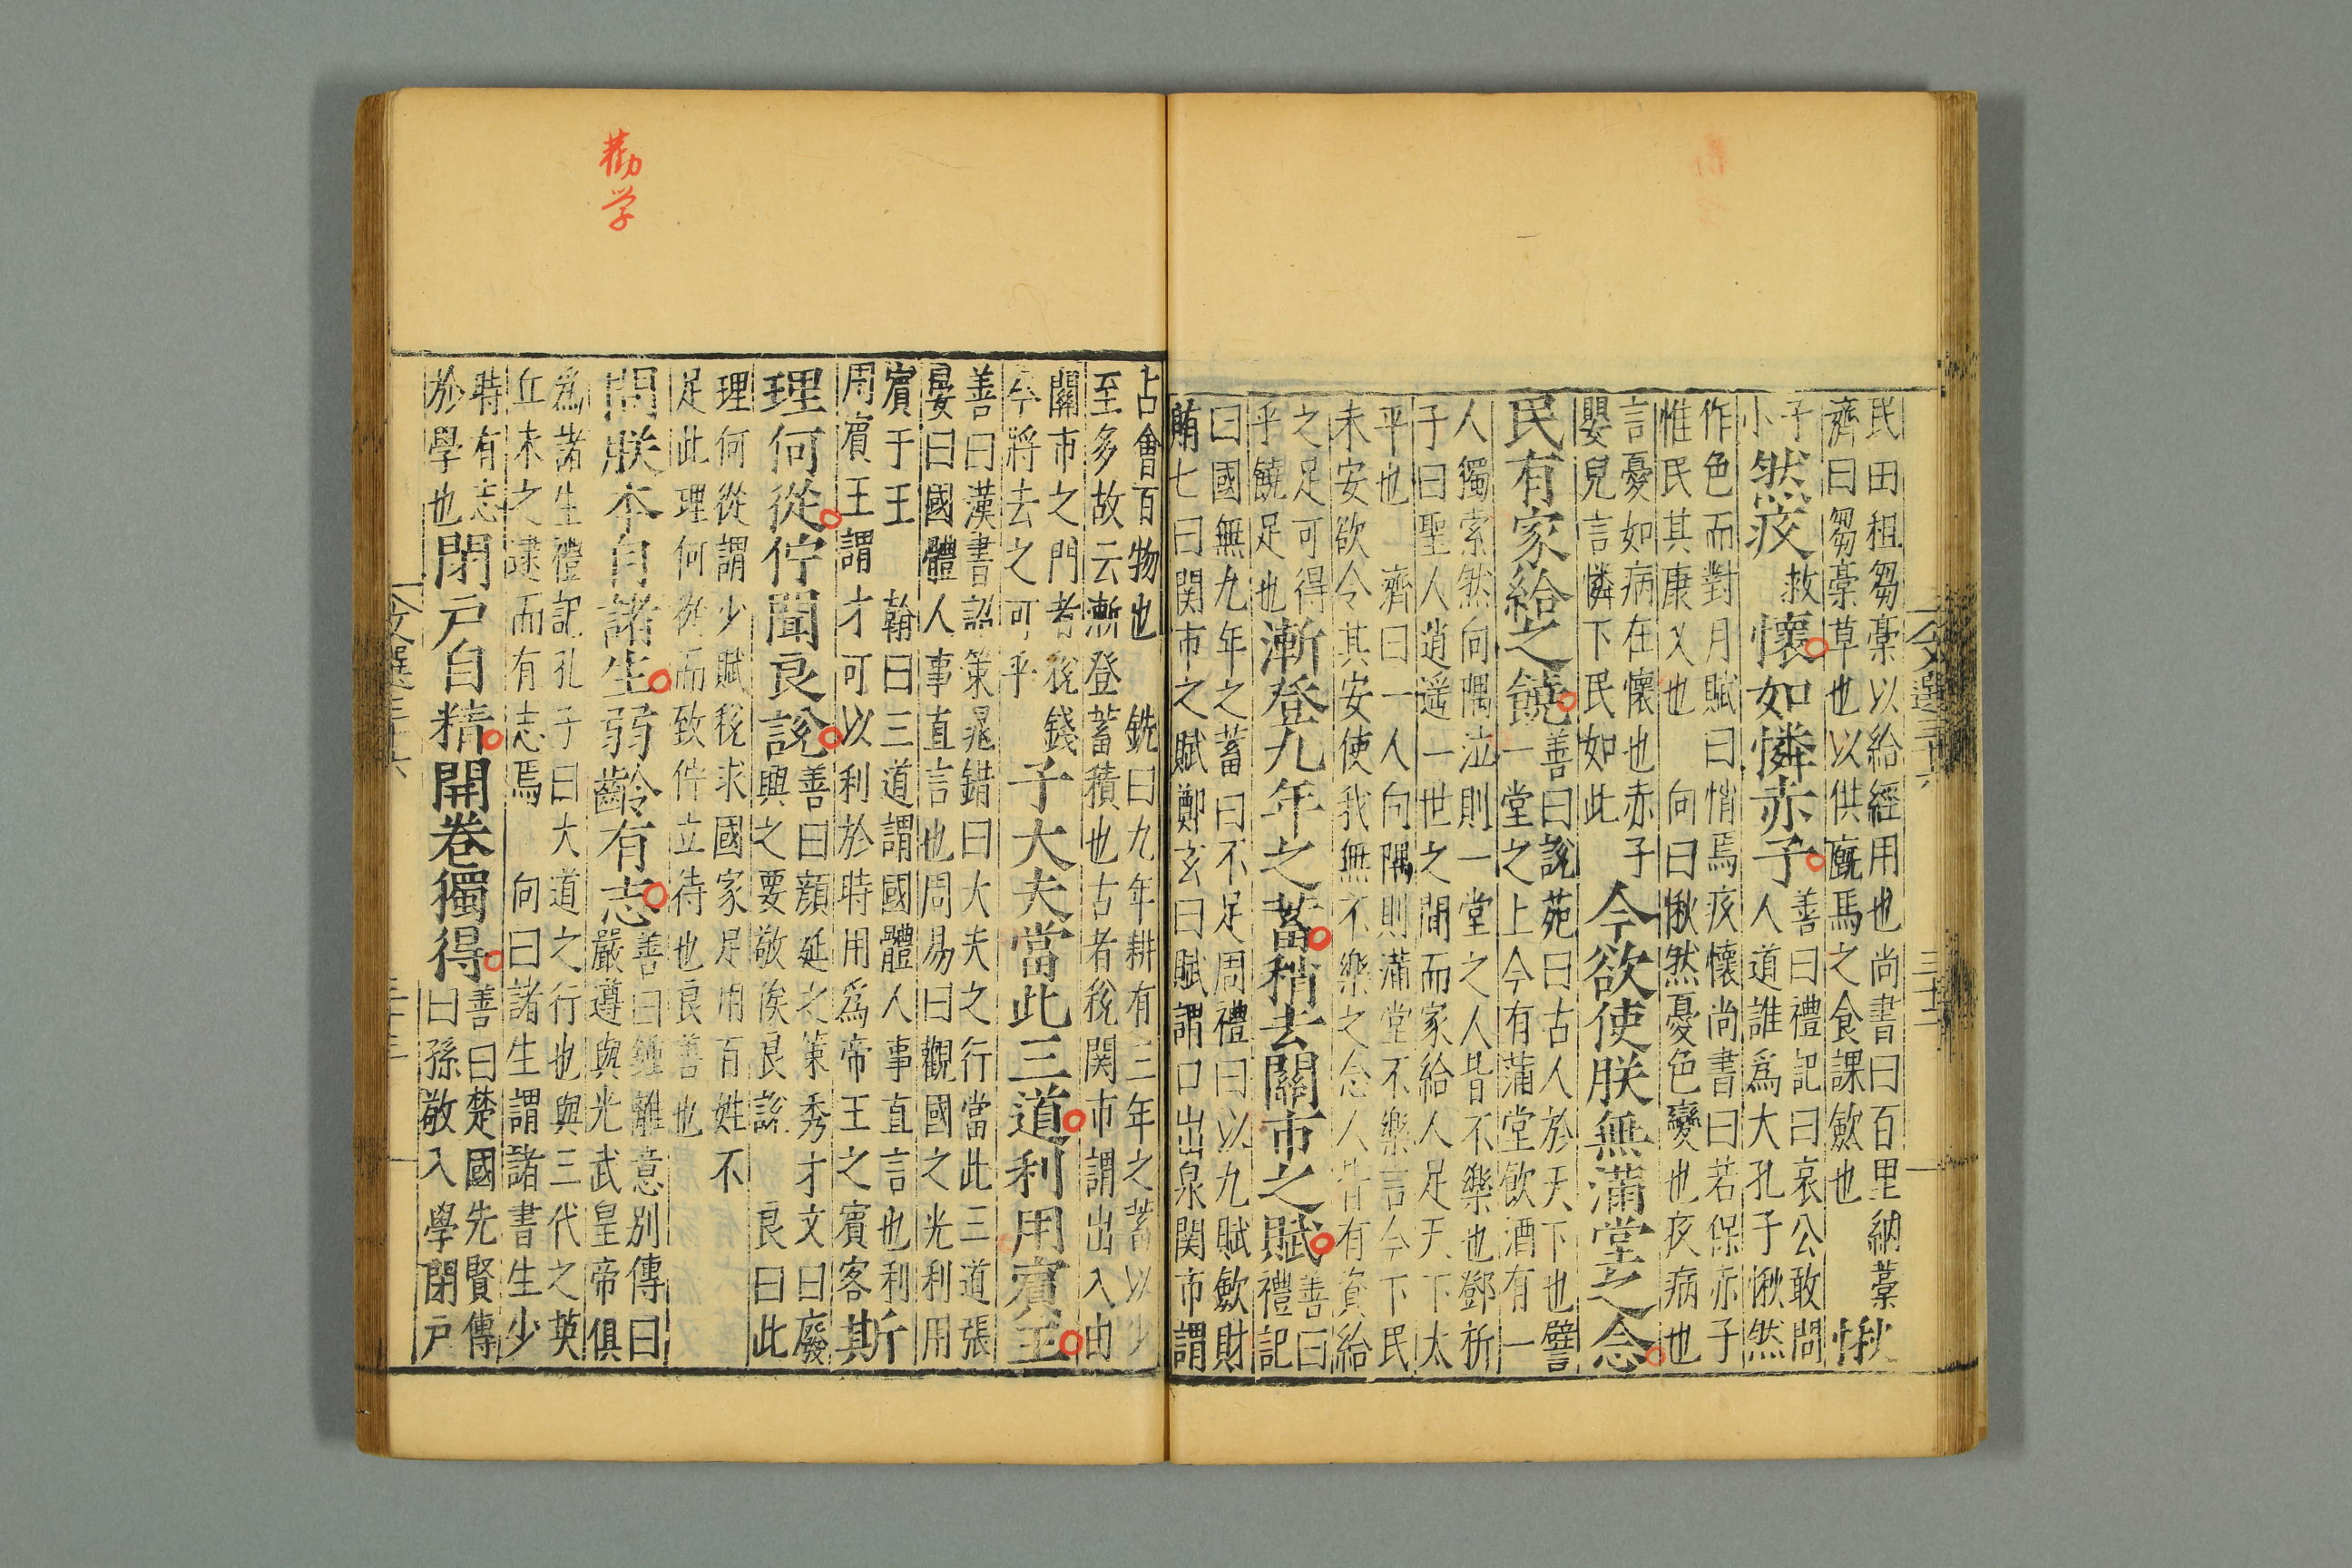 民田租芻藁以給經用也尚書曰百里納藁
齊曰芻藁草也以供廐馬之食課斂也
愀
子
小
然疚
救
懷如憐赤子
善曰禮記曰哀公敢問
人道誰爲大孔子愀然
作色而對月賦曰悄焉疚懷尚書曰若保赤子
惟民其康乂也 向曰愀然憂色變也疚病也
言憂如病在懷也赤子
嬰兒言憐下民如此
今欲使朕無滿堂之念
民有家給之饒
善曰說苑曰古人於天下也譬
一堂之上今有滿堂飲酒有一
人獨索然向隅泣則一堂之人皆不樂也鄧析
子曰聖人逍遥一世之間而家給人足天下太
平也 濟曰一人向隅則滿堂不樂言今下民
未安欲令其安使我無不樂之念人皆有資給
之足可得
乎饒足也
漸登九年之蓄稍去關市之賦
善曰
禮記
曰國無九年之蓄曰不足周禮曰以九賦斂財
賄七曰関市之賦鄭玄曰賦謂口出泉関市謂
占會百物也 銑曰九年耕有三年之蓄以少
至多故云漸登蓄積也古者稅関市謂出入由
關市之門者稅錢
今將去之可乎
子大夫當此三道利用賓王
善曰漢書詔策鼂錯曰大夫之行當此三道張
晏曰國體人事直言也周易曰觀國之光利用
賓于王 翰曰三道謂國體人事直言也利
周賔王謂才可以利於時用爲帝王之賓客
斯
其
理何從佇聞良說
善曰顔延之策秀才文曰廢
興之要敬俟良說 良曰此
理何從謂少賦稅求國家足用百姓不
足此理何從而致佇立待也良善也
問朕本自諸生弱齡有志
善曰鍾離意別傳曰
嚴遵與光武皇帝俱
爲諸生禮記孔子曰大道之行也與三代之英
丘未之逮而有志焉 向曰諸生謂諸書生少
時有志
於學也
閉戶自精開卷獨得
善曰楚國先賢傳
曰孫敬入學閉戶
勸学
文選三十六
三十二
文選三十六
三十三